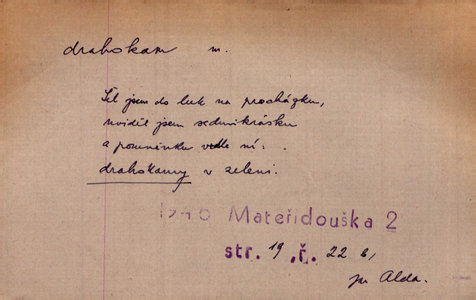 drahokam m.
Šel jsem do luk na procházku,
uviděl jsem sedmikrásku
a pomněnku vedle ní:
drahokamy v zeleni.
1946 Mateřídouška 2
str. 19, č. 22 b,
Alda.